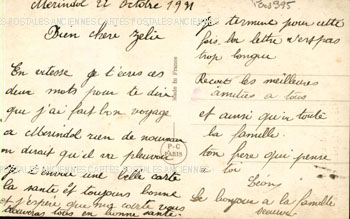 Merindol 22 Octobre 1931
Bien chere Zelia
En vitesse je t'ecris ces
deux mots pour te dire
que j'ai fait bon voyage
a Merindol rien de nouveau
on dirait qu'il va pleuvoir
Je t'envoie une belle carte
la santé est toujours bonne
et j'espère que ma carte vous
trouvera tous en bonne santé
Je termine pour cette
fois, la lettre n'est pas
trop longue
Recois les meilleures
amities a tous
et ainsi qu'a toute
la famille.
ton frere qui pense
a toi
Leon
Le bonjour a la famille
Made in France
P-C
PARIS
POSTALES ANCIENNES CARTES POSTALES ANCIENNES